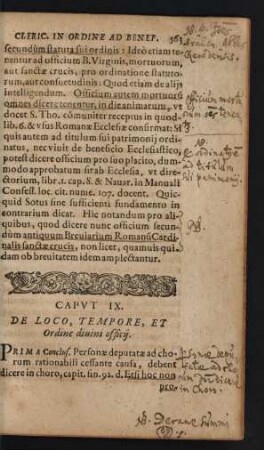 CLERIC. IN ORDINE AD BENEF. 361
secundùm statuta sui ordinis: Ideo etiam te-
nentur ad officium B. Virginis, mortuorum,
aut sanctæ crucis, pro ordinatione statuto-
rum, aut consuetudinis: Quod etiam de alijs
intelligendum. Officium autem mortuorũ
omnes dicere tenentur, in die animarum, vt
docet S. Tho. cõmuniter receptus in quod-
lib. 6. & vsus Romanæ Ecclesiæ confirmat: Si
quis autem ad titulum sui patrimonij ordi-
natus, nec viuit de beneficio Ecclesiastico,
potest dicere officium pro suo placito, dum-
modo approbatum sit ab Ecclesia, vt dire-
ctorium, libr. 2. cap. 8. & Nauar. in Manuali
Confess. loc. cit. nume. 107. docent. Quic-
quid Sotus sine sufficienti fundamento in
contrarium dicat. Hic notandum pro ali-
quibus, quod dicere nunc officium secun-
dùm antiquum Breuiarium Romanũ Cardi-
nalis sanctæ crucis, non licet, quamuis qui-
dam ob breuitatem idem amplectantur.
CAPVT IX.
DE LOCO, TEMPORE, ET
Ordine diuini officij.
PRIMA Conclus. Personæ deputatæ ad cho-
rum rationabili cessante causa, debent
dicere in choro, capit. sin. 92. d. Etsi hoc non
pre-
officium mort
in choro